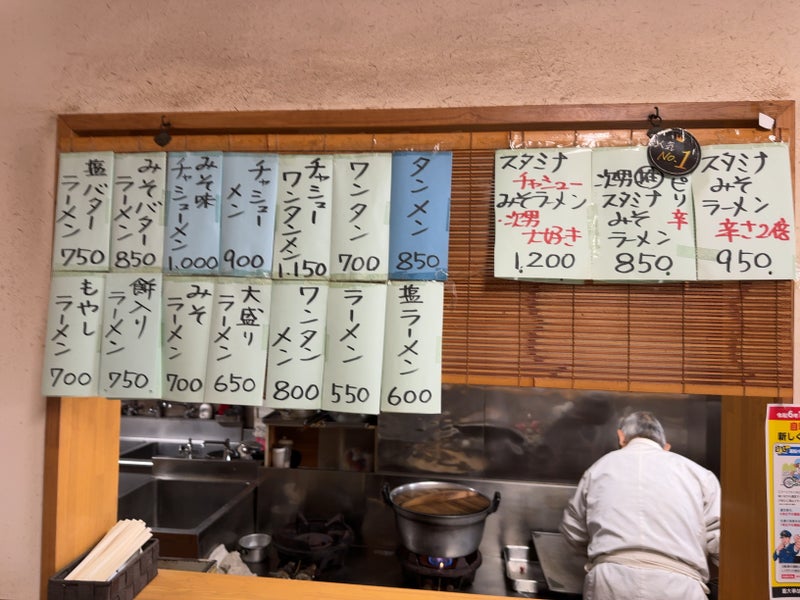 タンメン
850
ワンタン
700
チャシュー
ワンタンメン
1.150
チャシュー
メン
900
みそ味
チャシューメン
1.000
みそバター
ラーメン
850
塩バター
ラーメン
750
塩ラーメン
600
ラーメン
550
ワンタン
メン
800
大盛り
ラーメン
650
みそ
ラーメン
700
餅入り
ラーメン
750
もやし
ラーメン
700
スタミナ
チャシュー
みそラーメン
・次男
大好き
1.200
No.1
ピリ
辛
次男
スタミナ
みそ
ラーメン
850
スタミナ
みそ
ラーメン
辛さ2倍
950
令和6年
新しく